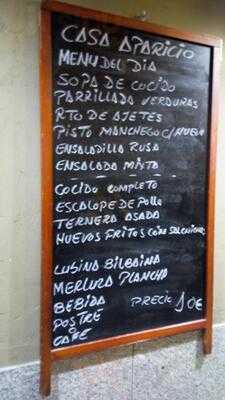 CASA APARICIO
MENU DEL DIA
SOPA DE COCIDO
PARRILLADA VERDURAS
RTO DE AJETES
PISTO MANCHEGO C/HUEVO
ENSALADILLA RUSA
ENSALADA MIXTA
COCIDO COMPLETO
ESCALOPE DE POLLO
TERNERA ASADA
HUEVOS FRITOS CON SALCHICHAS
LUBINA BILBAINA
MERLUZA PLANCHA
BEBIDA PRECIO 10€
POSTRE
CAFE